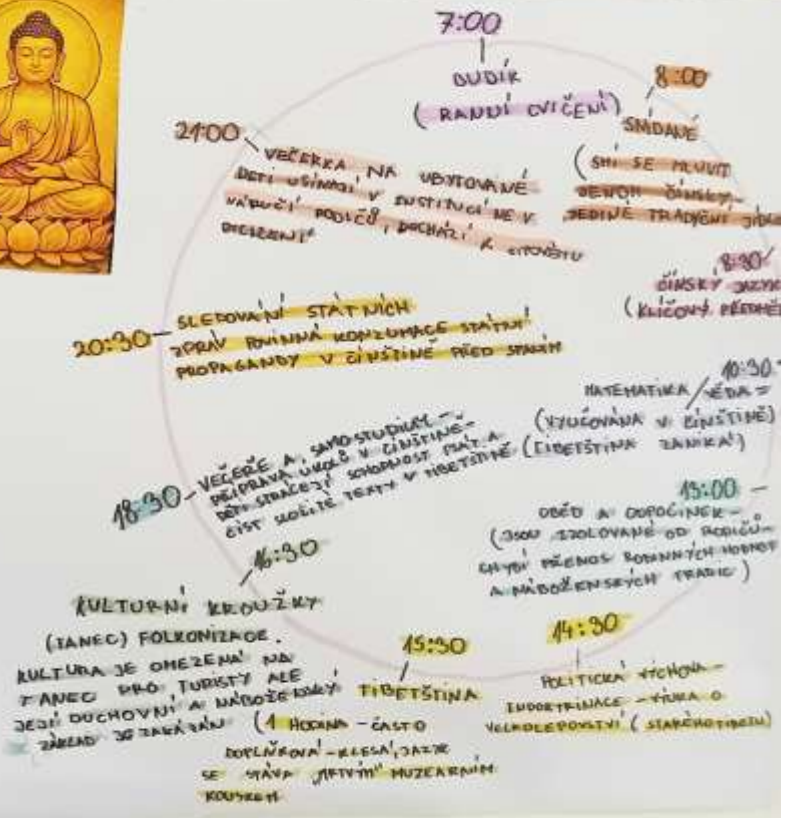 7:00
BUDÍK
(RANNÍ CVIČENÍ)
8:00
SNÍDANĚ
(SMÍ SE MLUVIT
JENOM ČÍNSKY-
JEDINĚ TRADIČNÍ JÍDLO
8:30
ČÍNSKÝ JAZYK
(KLÍČOVÝ PŘEDMĚT
10:30
MATEMATIKA/VĚDA =
(VYUČOVÁNA V ČÍNŠTINĚ)
(TIBETŠTINA ZANIKÁ)
13:00 -
OBĚD A ODPOČINEK -
(JSOU IZOLOVANÉ OD RODIČŮ-
CHYBÍ PŘENOS RODINNÝCH HODNOT
A NÁBOŽENSKÝCH TRADIC)
14:30
POLITICKÁ VÝCHOVA -
INDOKTRINACE - VÝUKA O
(STARÉHO TIBETU)
15:30
TIBETŠTINA
(1 HODINA - ČASTO
DOPLŇKOVÁ - KLESÁ, JAZYK
SE STÁVÁ „MRTVÝM" MUZEÁRNÍM
KOUSKEM
16:30
KULTURNÍ KROUŽKY
(TANEC) FOLKONIZACE.
KULTURA JE OMEZENÁ NA
TANEC PRO TURISTY ALE
JEJÍ DUCHOVNÍ A NÁBOŽENSKÝ
ZÁKLAD JE ZAKÁZÁN
18:30 - VEČEŘE A SAMOSTUDIUM -
PŘÍPRAVA ÚKOLŮ V ČÍNŠTINĚ-
DĚTI STRÁCEJÍ SCHOPNOST PSÁT A
ČÍST SLOŽITÉ TEXTY V TIBETŠTINĚ
20:30 - SLEDOVÁNÍ STÁTNÍCH
ZPRÁV POVINNÁ KONZUMACE STÁTNÍ
PROPAGANDY V ČÍNŠTINĚ PŘED SPANÍM
21:00
VEČERKA NA UBYTOVANÉ
DĚTI USÍNAJÍ V INSTITUCI NE V
NÁRUČÍ RODIČŮ, DOCHÁZÍ K CITOVÉMU